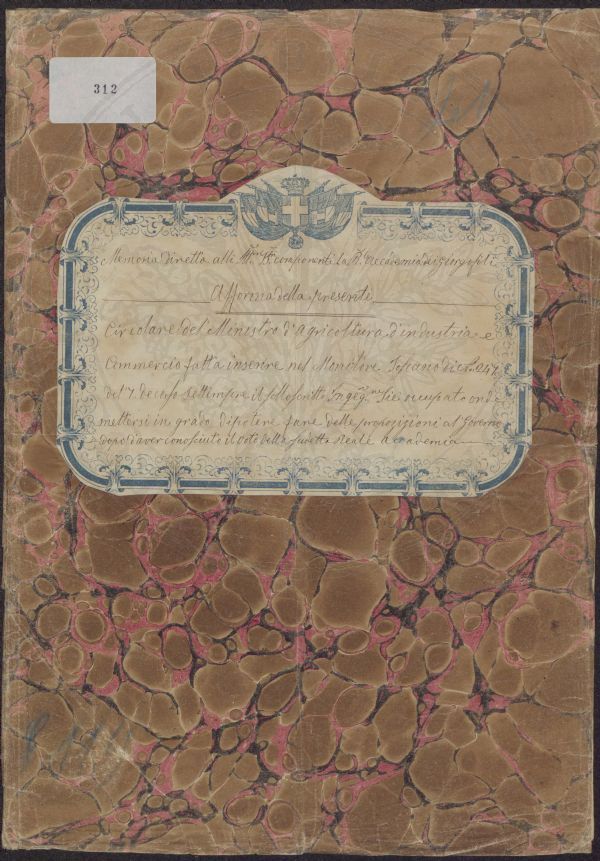 312
Memoria diretta alli componenti la Rle Accademia dei Georgofili
A Norma della presente
Circolare del Ministro d'Agricoltura d'industria e
Commercio fatta inserire nel Monitore Toscano di No. 247
del 7. decorso settempre il sottoscritto Ingegre. si è occupato onde
mettersi in grado di potere fare delle proposizioni al Governo
dopo d'aver conosciuto il voto della sudetta Reale Accademia